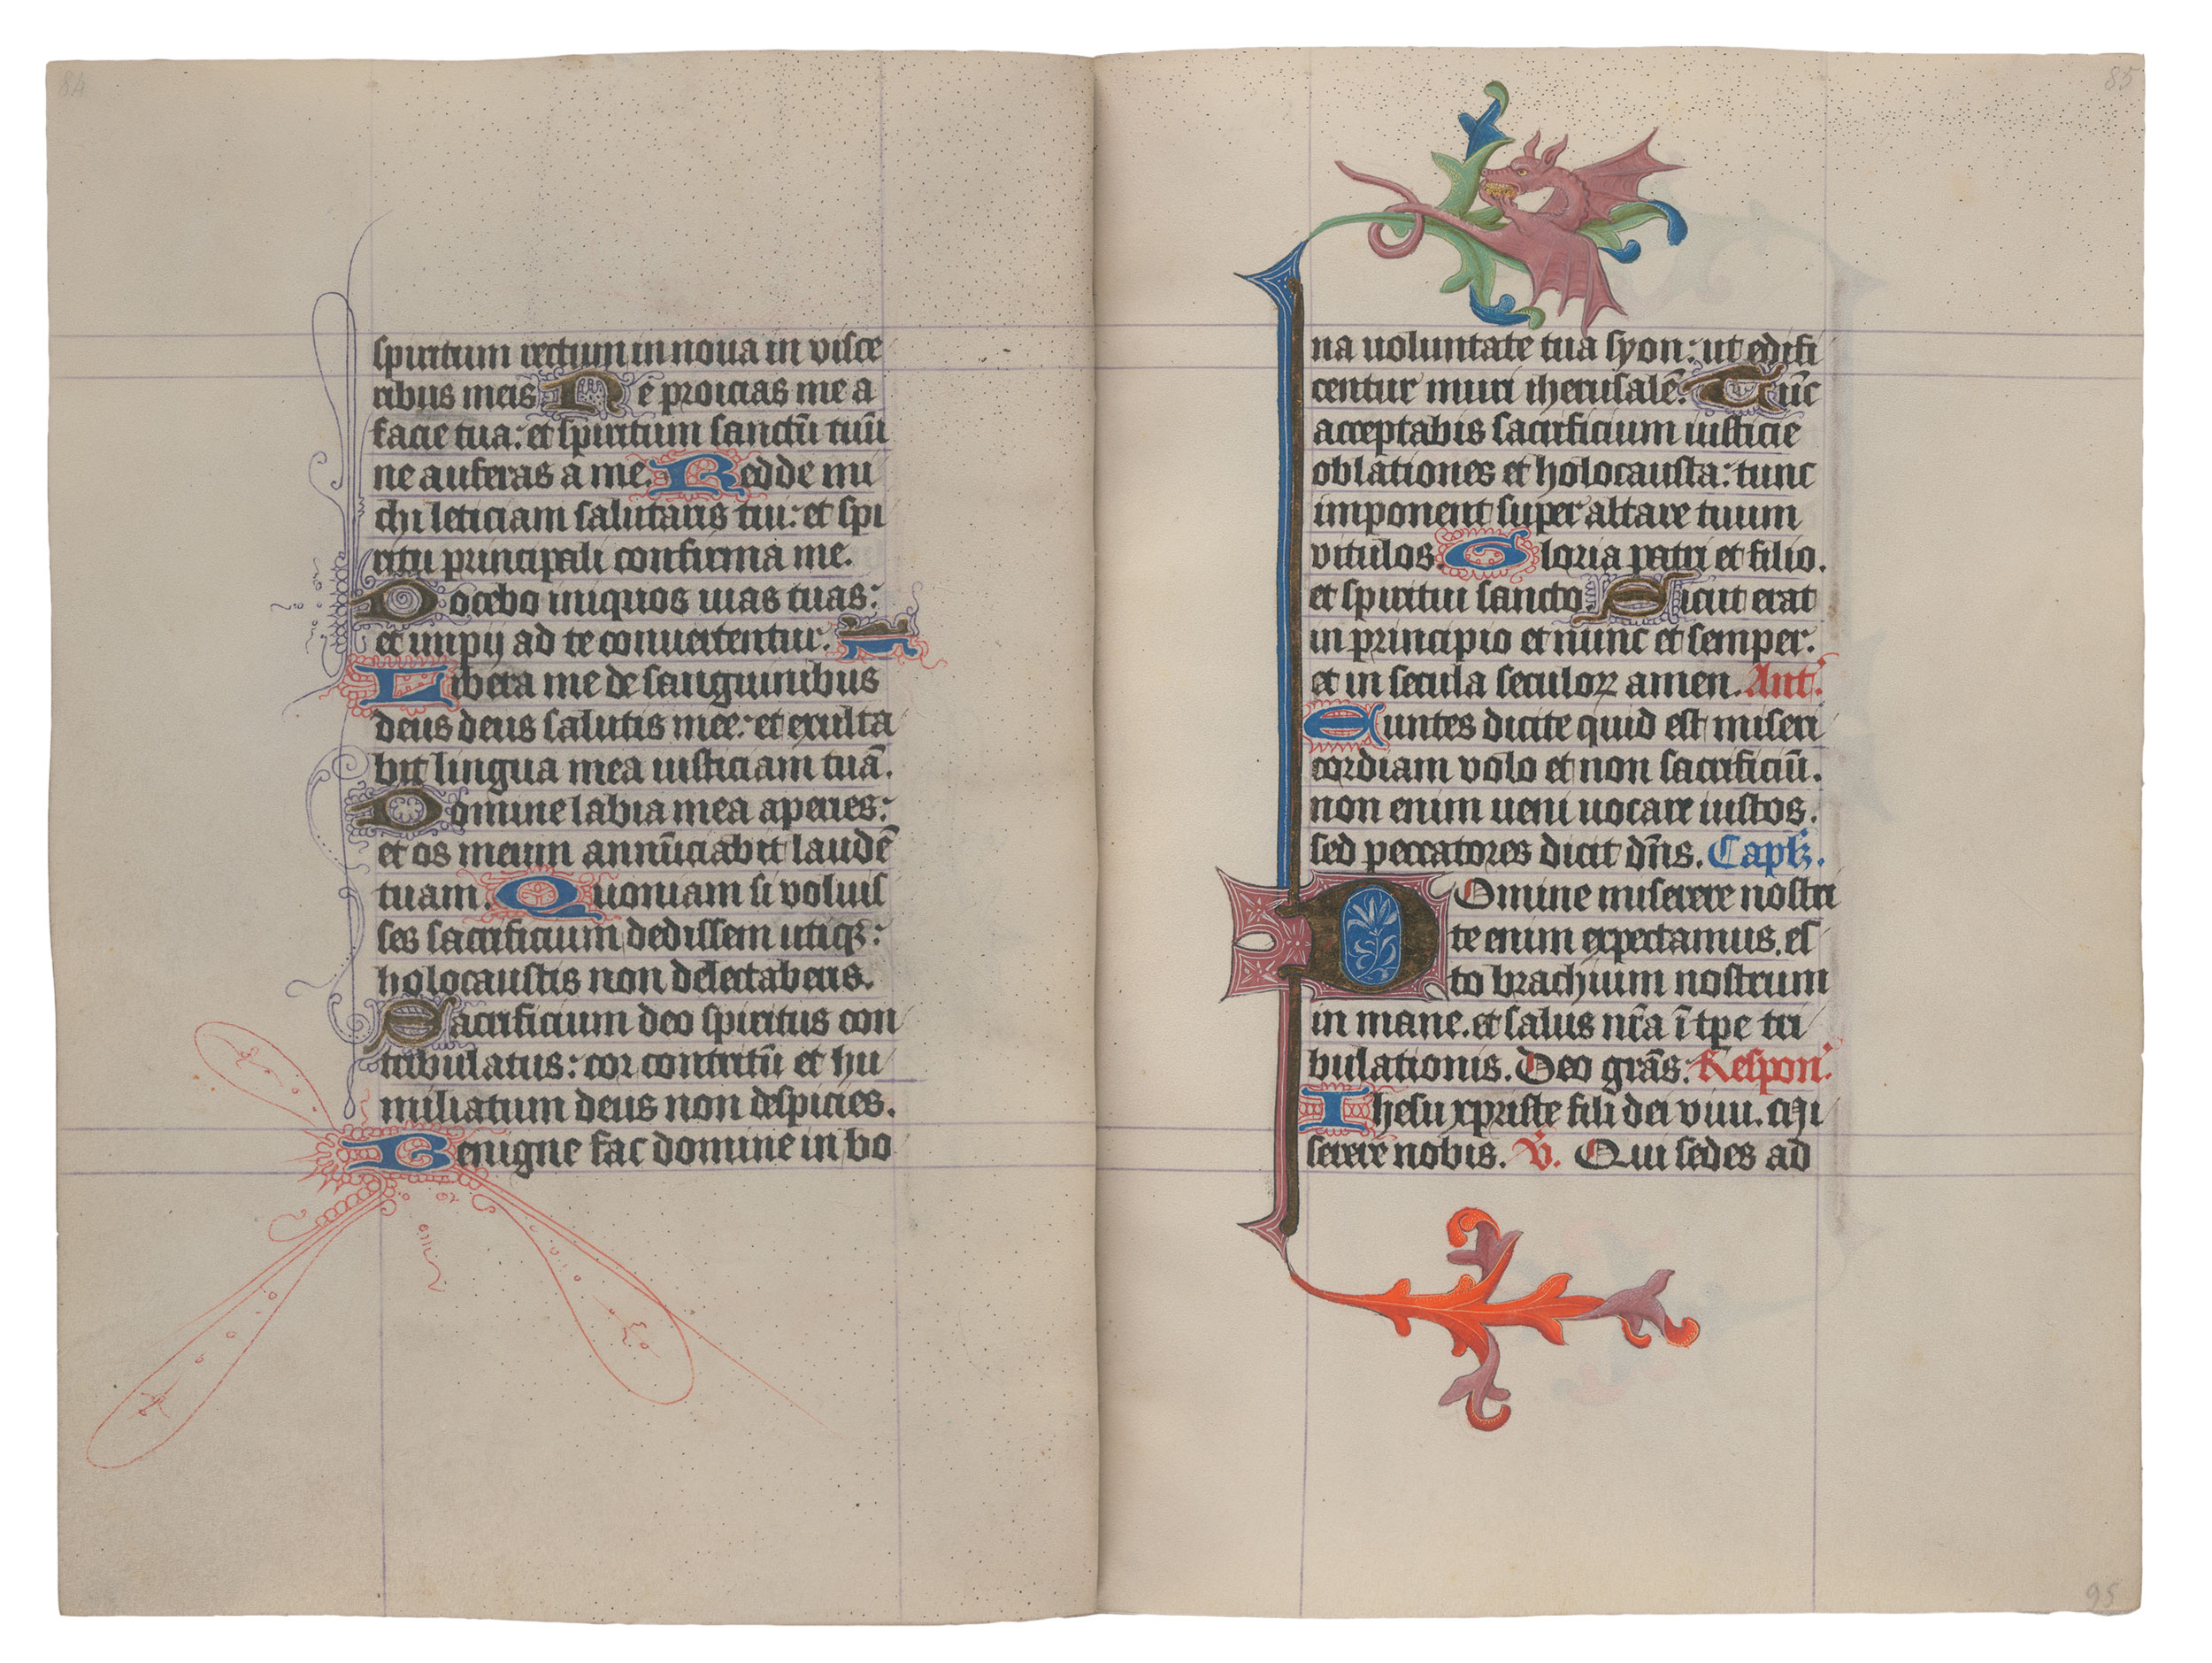 84
spiritum rectum in noua in visce
ribus meis Ne proicias me a
facie tua: et spiritum sanctū tuū
ne auferas a me. Redde mi
chi leticiam salutaris tui: et spi
ritu principali confirma me.
Docebo iniquos uias tuas:
et impij ad te conuertentur.
Libera me de sanguinibus
deus deus salutis mee: et exulta
bit lingua mea iusticiam tuā.
Domine labia mea aperies:
et os meum annūciabit laudē
tuam. Quoniam si voluis
ses sacrificium dedissem utiqꝫ:
holocaustis non delectaberis.
Sacrificium deo spiritus con
tribulatus: cor contritū et hu
miliatum deus non despicies.
Benigne fac domine in bo
85
na uoluntate tua syon: ut edifi
centur muri iherusalē. Tūc
acceptabis sacrificium iusticie
oblationes et holocausta: tunc
imponent super altare tuum
vitulos. Gloria patri et filio.
et spiritui sancto Sicut erat
in principio et nunc et semper.
et in secula seculoꝝ amen. Ant.
Euntes dicite quid est miseri
cordiam volo et non sacrificiū.
non enim ueni uocare iustos.
sed peccatores dicit dn̄s. Capl̄.
Domine miserere nostri
te enim expectamus. es
to brachium nostrum
in mane. et salus nr̄a ī tpe tri
bulationis. Deo grās. Respon.
Ihesu xpriste fili dei viui. Mi
serere nobis. V̄. Qui sedes ad
95